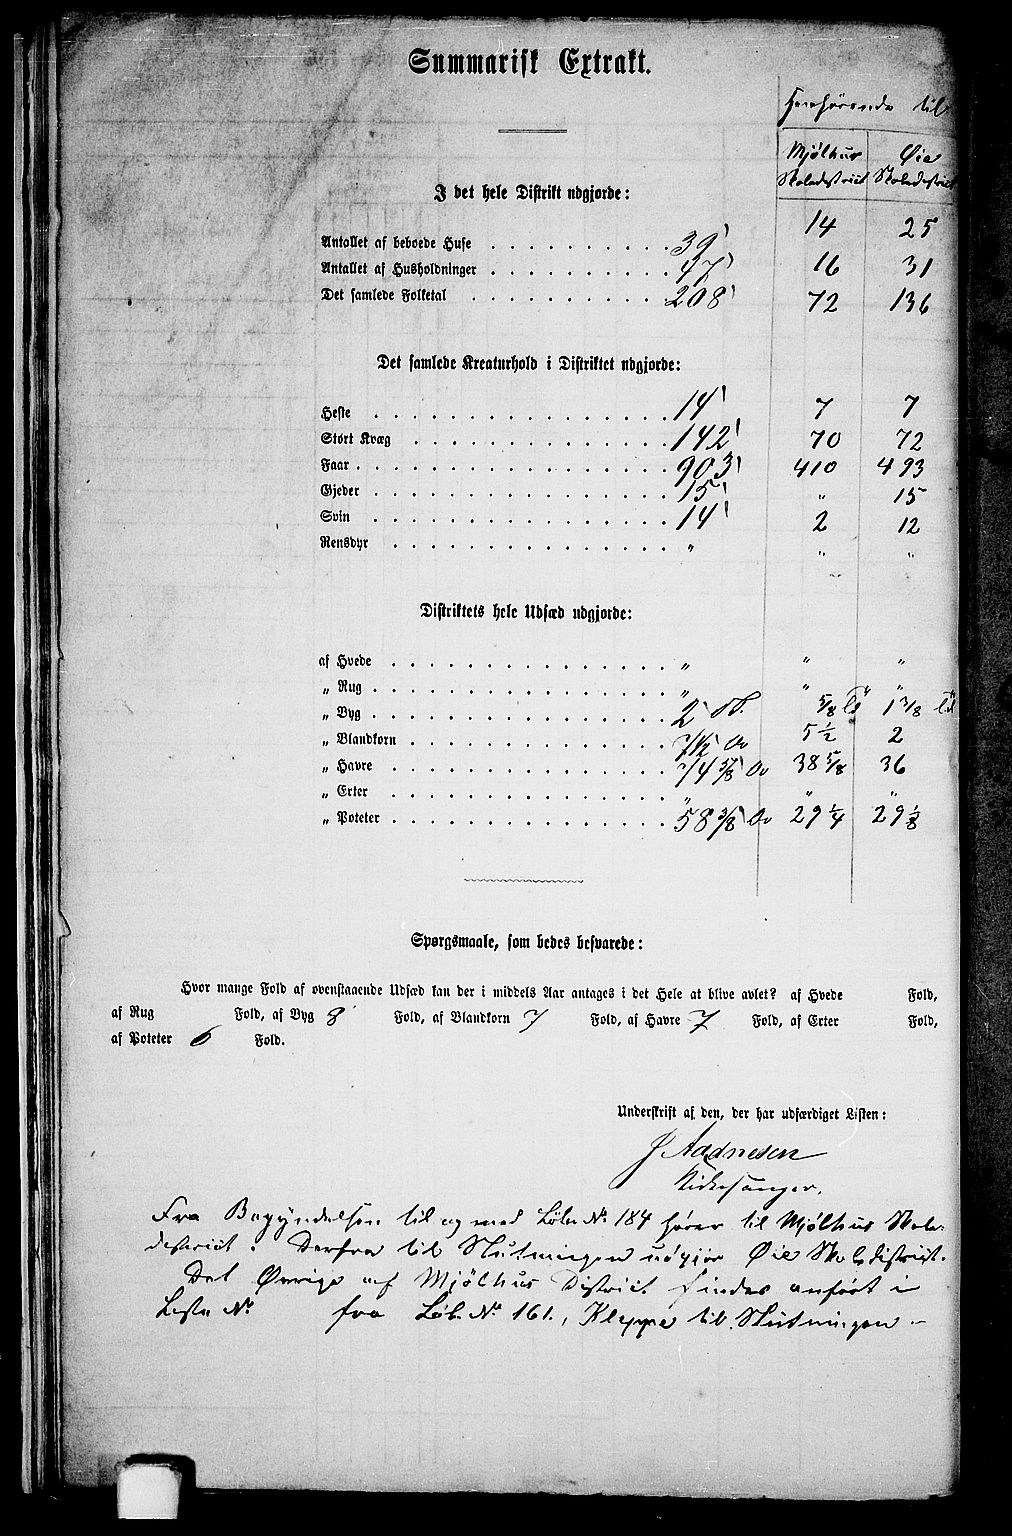 Summarisk Extrakt.
Henhørende til
Mjølhus Skoledistrict Øie Skoledistrict
I det hele Distrikt udgjorde:
Antallet af beboede Huse 39 14 25
Antallet af Husholdninger 47 16 31
Det samlede Folketal 208 72 136
Det samlede Kreaturhold i Distriktet udgjorde:
Heste 14 7 7
Stort Kvæg 142 70 72
Faar 903 410 493
Gjeder 15 „ 15
Svin 14 2 12
Rensdyr „ „ „
Distriktets hele Udsæd udgjorde:
af Hvede „ „ „
„ Rug „ „ „
„ Byg 2 5/8 1 3/8
„ Blandkorn 7 1/2 5 1/2 2
„ Havre 74 5/8 38 5/8 36
„ Erter „ „ „
„ Poteter 58 3/8 29 1/4 29 1/8
Spørgsmaale, som bedes besvarede:
Hvor mange Fold af ovenstaaende Udsæd kan der i middels Aar antages i det Hele at blive avlet? af Hvede Fold,
af Rug Fold, af Byg 8 Fold, af Blandkorn 7 Fold, af Havre 7 Fold, af Erter Fold,
af Poteter 6 Fold.
Underskrift af den, der har udfærdiget Listen:
J Aadnesen
Kirkesanger.
Fra Begyndelsen til og med Løbe No 184 hører til Mjølhus Skole-
district. Derfra til Slutningen udgjør Øie Skoledistrict.
Det Øvrige af Mjølhus District findes anført i
Liste No fra Løb. No 161., Kleppe til Slutningen. –